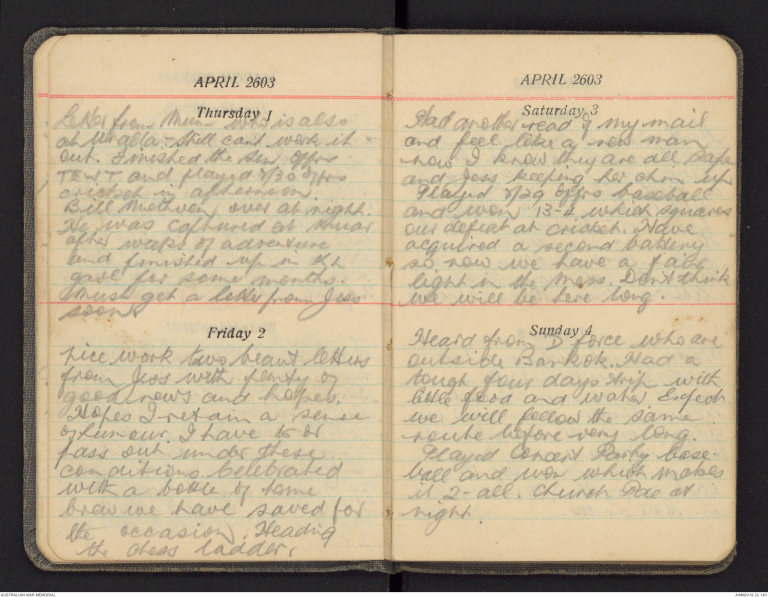 APRIL 2603
Thursday 1
Letter from Mum who is also
at W'galla - Still can't work it
out. Finished the Sen Offrs
TEWT and played 2/30 Offrs
cricket in afternoon.
Bill over at night.
He was captured at Muar
after weeks of adventure
and finished up in KL
gaol for some months.
Must get a letter from Jess
soon
Friday 2
Nice work two beaut letters
from Jess with plenty of
good news and hopes.
Hopes I retain a sense
of humour. I have to or
pass out under these
conditions. Celebrated
with a bottle of home
brew we have saved for
the occasion. Heading
the chess ladder.
APRIL 2603
Saturday 3
Had another read of my mail
and feel like a new man
now I know they are all safe
and Jess keeping her chin up
Played 2/29 Offrs baseball
and won 13-4 which squares
our defeat at cricket. Have
acquired a second battery
so now we have a fair
light in the Mess. Don't think
we will be here long.
Sunday 4
Heard from D force who are
outside Bankok. Had a
tough four days trip with
little food and water. Expect
we will follow the same
route before very long.
Played Concert Party base-
ball and won which makes
it 2-all. Church Pde at
night.
AUSTRALIAN WAR MEMORIAL